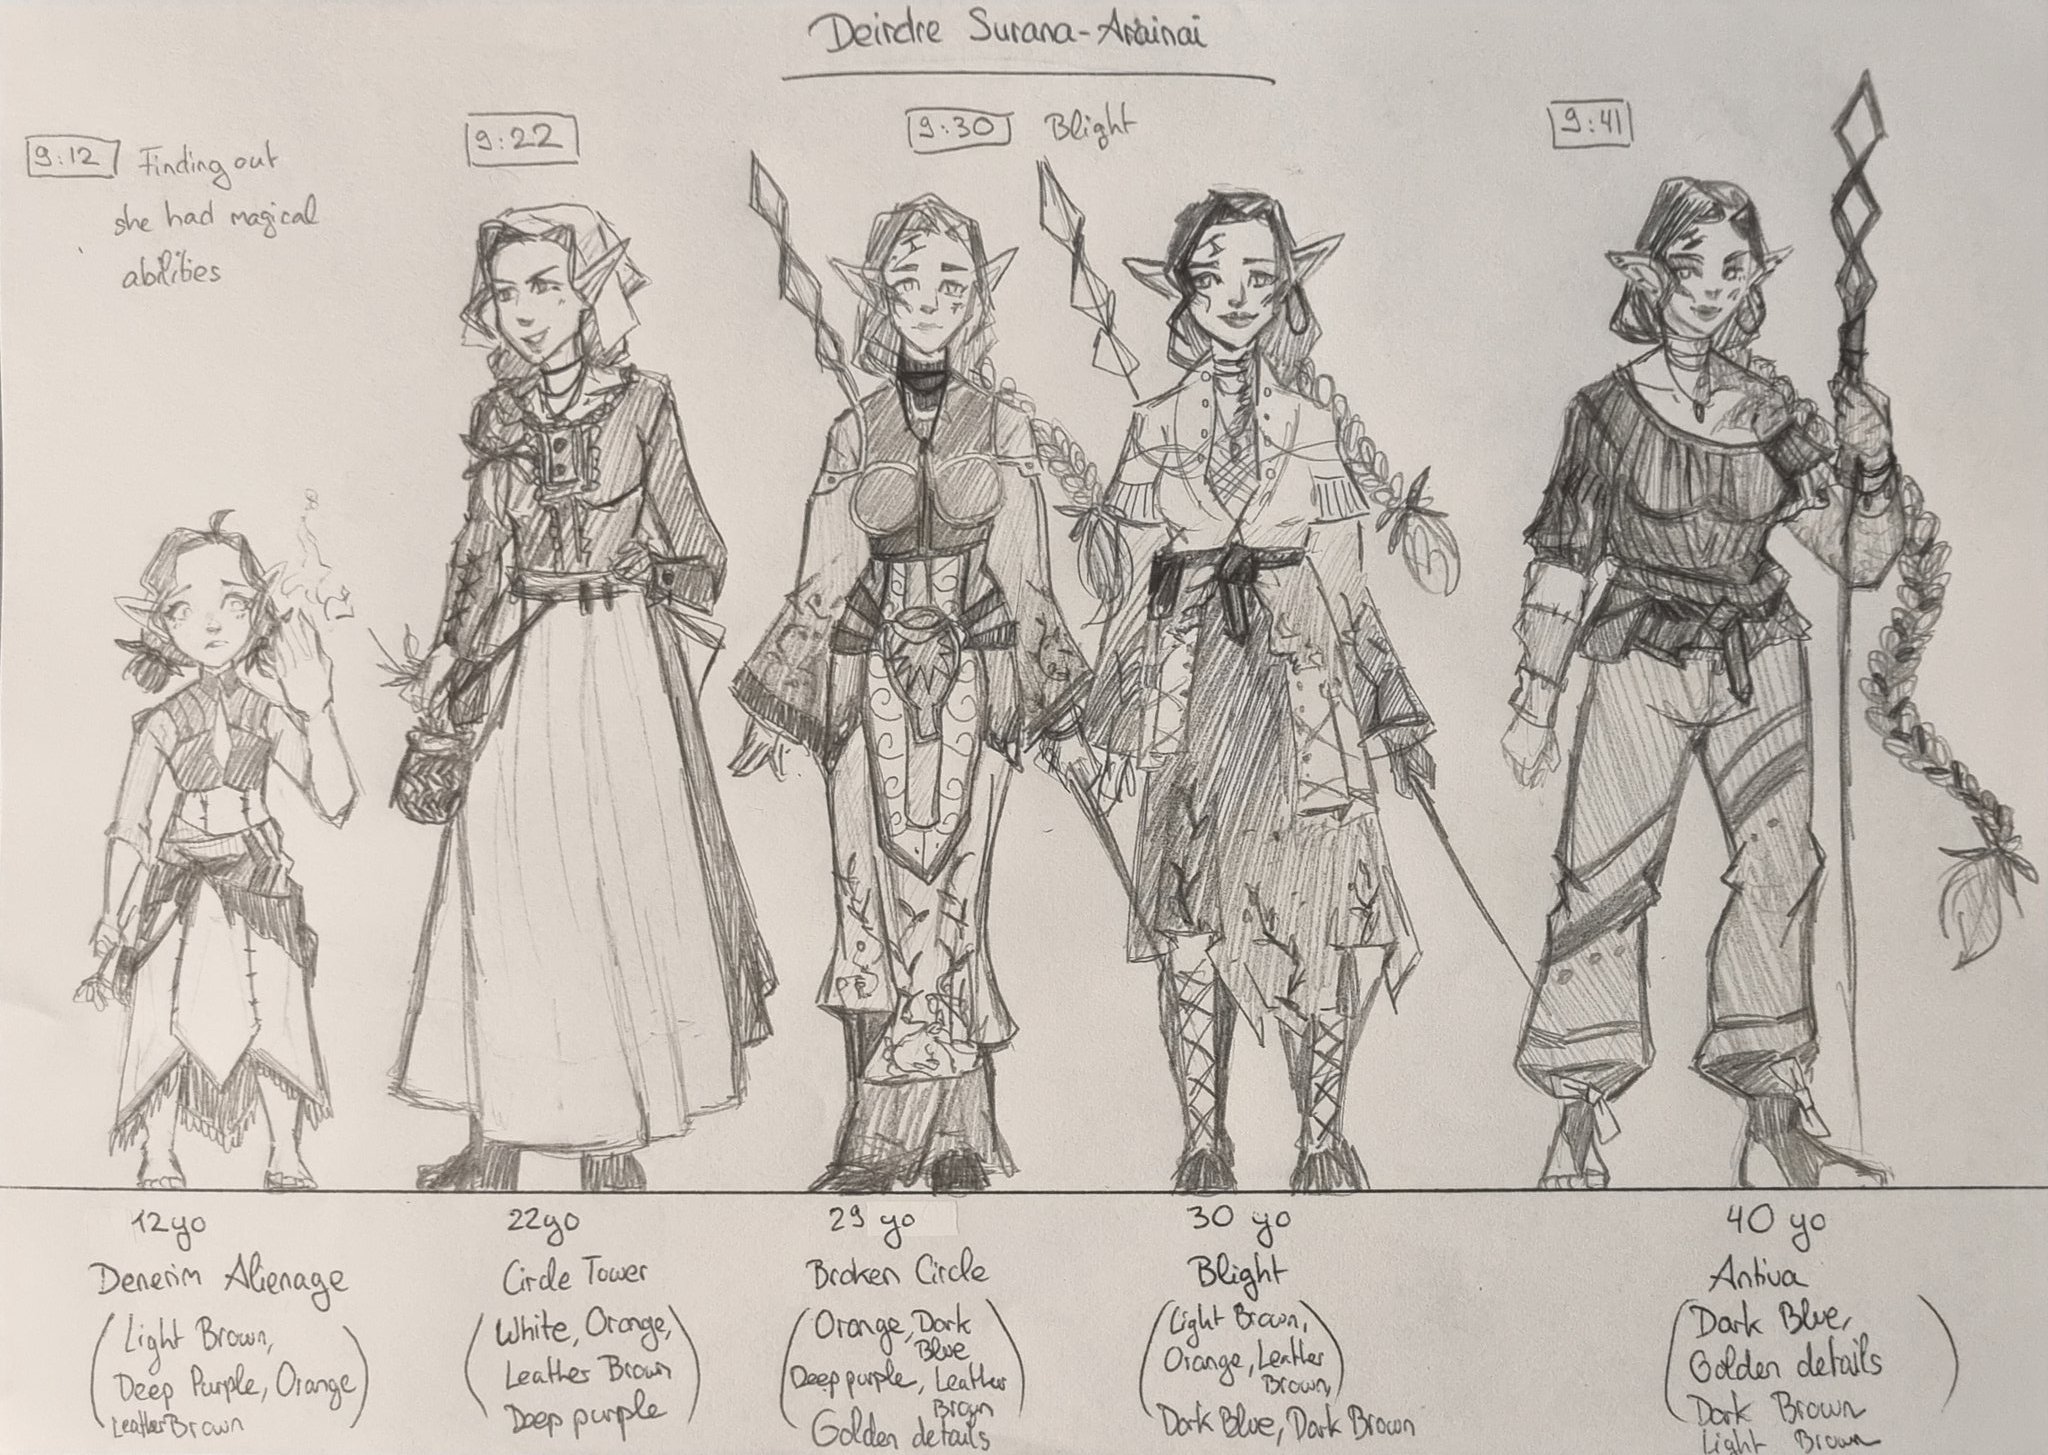 Deirdre Surana-Arainai
9:12 Finding out
she had magical
abilities
9:22
9:30 Blight
9:41
12yo
Denerim Alienage
(Light Brown,
Deep Purple, Orange)
Leather Brown
22yo
Circle Tower
(White, Orange,
Leather Brown)
Deep purple
29 yo
Broken Circle
(Orange, Dark
Blue
Deep purple, Leather
Brown)
Golden details
30 yo
Blight
(Light Brown,
Orange, Leather
Brown,)
Dark Blue, Dark Brown
40 yo
Antiva
(Dark Blue,
Golden details
Dark Brown)
Light Brown